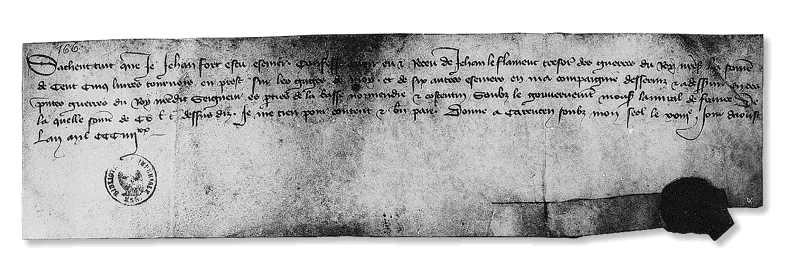 166
Sachent tuit que Je Jehan fort escu escuier Confesse avoir eu & Receu de Jehan le flament tresor des guerres du Roy nress la some
de Cent Cinq livres tournois en prest sur les gaiges de moy et de six autres escuiers en ma compaignie desserviz & a desservir en ces
pntes guerres du Roy nredit Seigneur es parties de la basse normendie & costentin Soubz le gouvernement mons ladmiral de france De
la quelle some de Cv l t dessusdiz Je me tien pour content & bien paie Donne a Carenten soubz mon seel le jour daoust
Lan mil CCC iiijxx
BIBLIOTH IMPERIALE